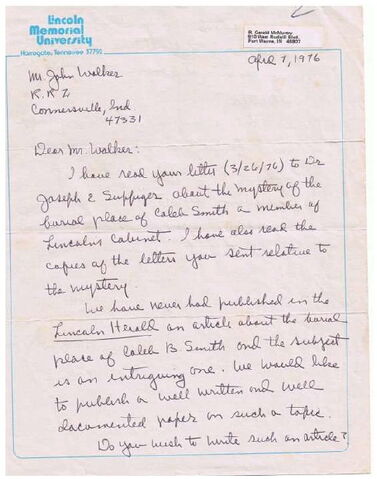 Lincoln
Memorial
University
Harrogate, Tennessee 37752
R. Gerald McMurtry
Fort Wayne, IN 46807
April 7, 1976
Mr. John Walker
R.R. 2
Connersville, Ind
47331
Dear Mr. Walker:
I have read your letter (3/26/76) to Dr
Joseph E Suppiger about the mystery of the
burial place of Caleb Smith a member of
Lincolns Cabinet. I have also read the
copies of the letters you sent relative to
the mystery.
We have never had published in the
Lincoln Herald an article about the burial
place of Caleb B Smith and the subject
is an intriguing one. We would like
to publish a well written and well
documented paper on such a topic.
Do you wish to write such an article?